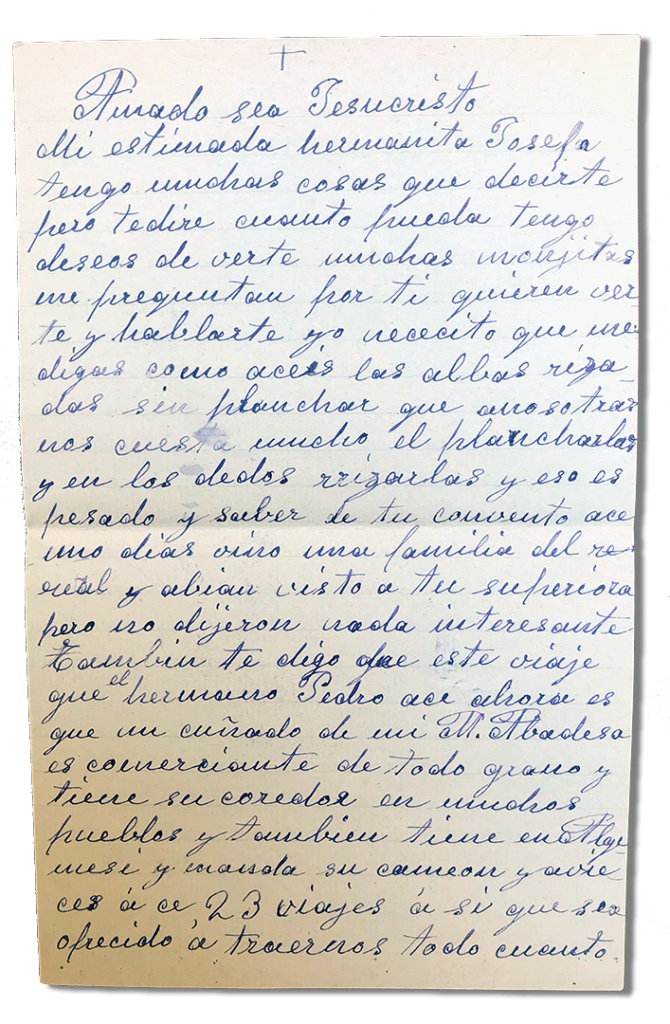 +
Amado sea Jesucristo
Mi estimada hermanita Josefa
tengo muchas cosas que decirte
pero tedire cuanto pueda tengo
deseos de verte muchas monjitas
me preguntan por ti quieren ver-
te y hablarte yo nececito que me
digas como aceis las albas riza-
das sin planchar que anosotras
nos cuesta mucho el plancharlas
y en los dedos rrizarlas y eso es
pesado y saber de tu convento ace
uno dias vino una familia del re-
real y abian visto a tu superiora
pero no dijeron nada interesante
tambin te digo que este viaje
que el hermano Pedro ace ahora es
que un cuñado de mi M. Abadesa
es comerciante de todo grano y
tiene su coredor en muchos
pueblos y tambien tiene en Alge-
mesi y manda su cameon y avie-
ces á ce 2 3 viajes á si que sea
ofrecido á traernos todo cuanto